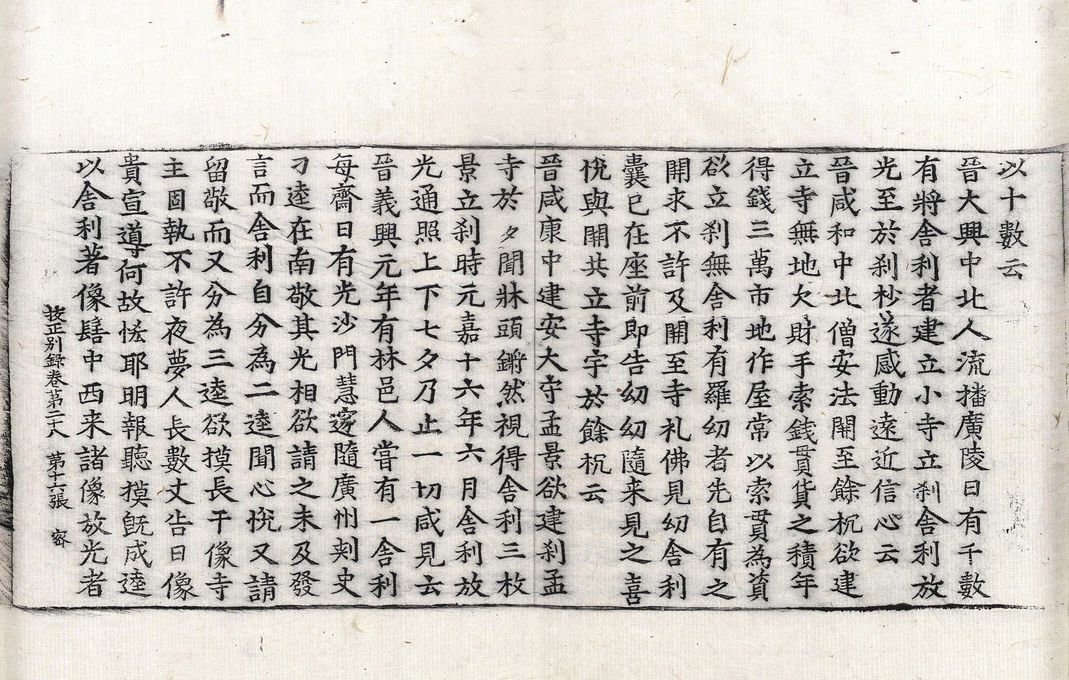 以十數云
晉大興中北人流播廣陵日有千數
有將舍利者建立小寺立刹舍利放
光至於刹杪遂感動遠近信心云
晉咸和中北僧安法開至餘杭欲建
立寺無地欠財手索錢貫貨之積年
得錢三萬市地作屋常以索貫為資
欲立刹無舍利有羅幼者先自有之
開求不許及開至寺礼佛見幼舍利
囊已在座前即告幼幼隨来見之喜
悅與開共立寺宇於餘杭云
晉咸康中建安大守孟景欲建刹孟
寺於夕聞牀頭鏘然視得舍利三枚
景立刹時元嘉十六年六月舍利放
光通照上下七夕乃止一切咸見云
晉義興元年有林邑人甞有一舍利
每齋日有光沙門慧邃隨廣州刺史
刁逵在南敬其光相欲請之未及發
言而舍利自分為二逵聞心悅又請
留敬而又分為三逵欲摸長干像寺
主固執不許夜夢人長數丈告曰像
貴宣導何故恡耶明報聽摸旣成逵
以舍利著像髻中西来諸像放光者
挍正別録卷第二十八 第十一張 密